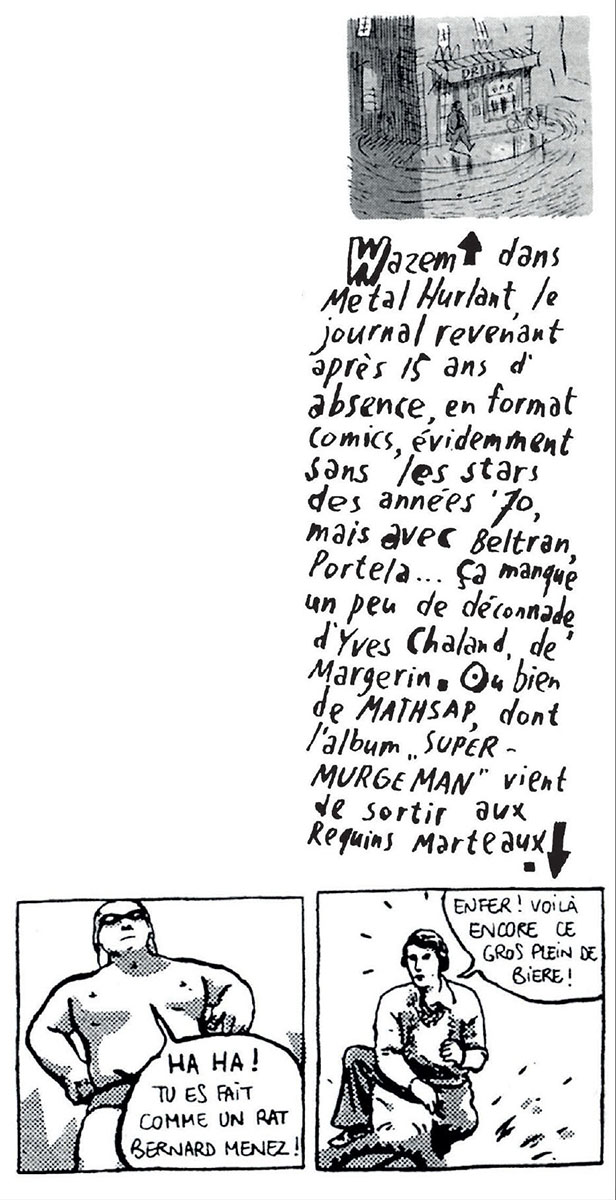 DRINK
BAR
Wazem dans
Métal Hurlant, le
journal revenant
après 15 ans d'
absence, en format
comics, évidemment
sans les stars
des années '70,
mais avec Beltran,
Portela... Ça manque
un peu de déconnade
d'Yves Chaland, de
Margerin. Ou bien
de MATHSAP, dont
l'album „SUPER-
MURGEMAN" vient
de sortir aux
Requins Marteaux.
HA HA!
TU ES FAIT
COMME UN RAT
BERNARD MENEZ!
ENFER! VOILÀ
ENCORE CE
GROS PLEIN DE
BIERE!